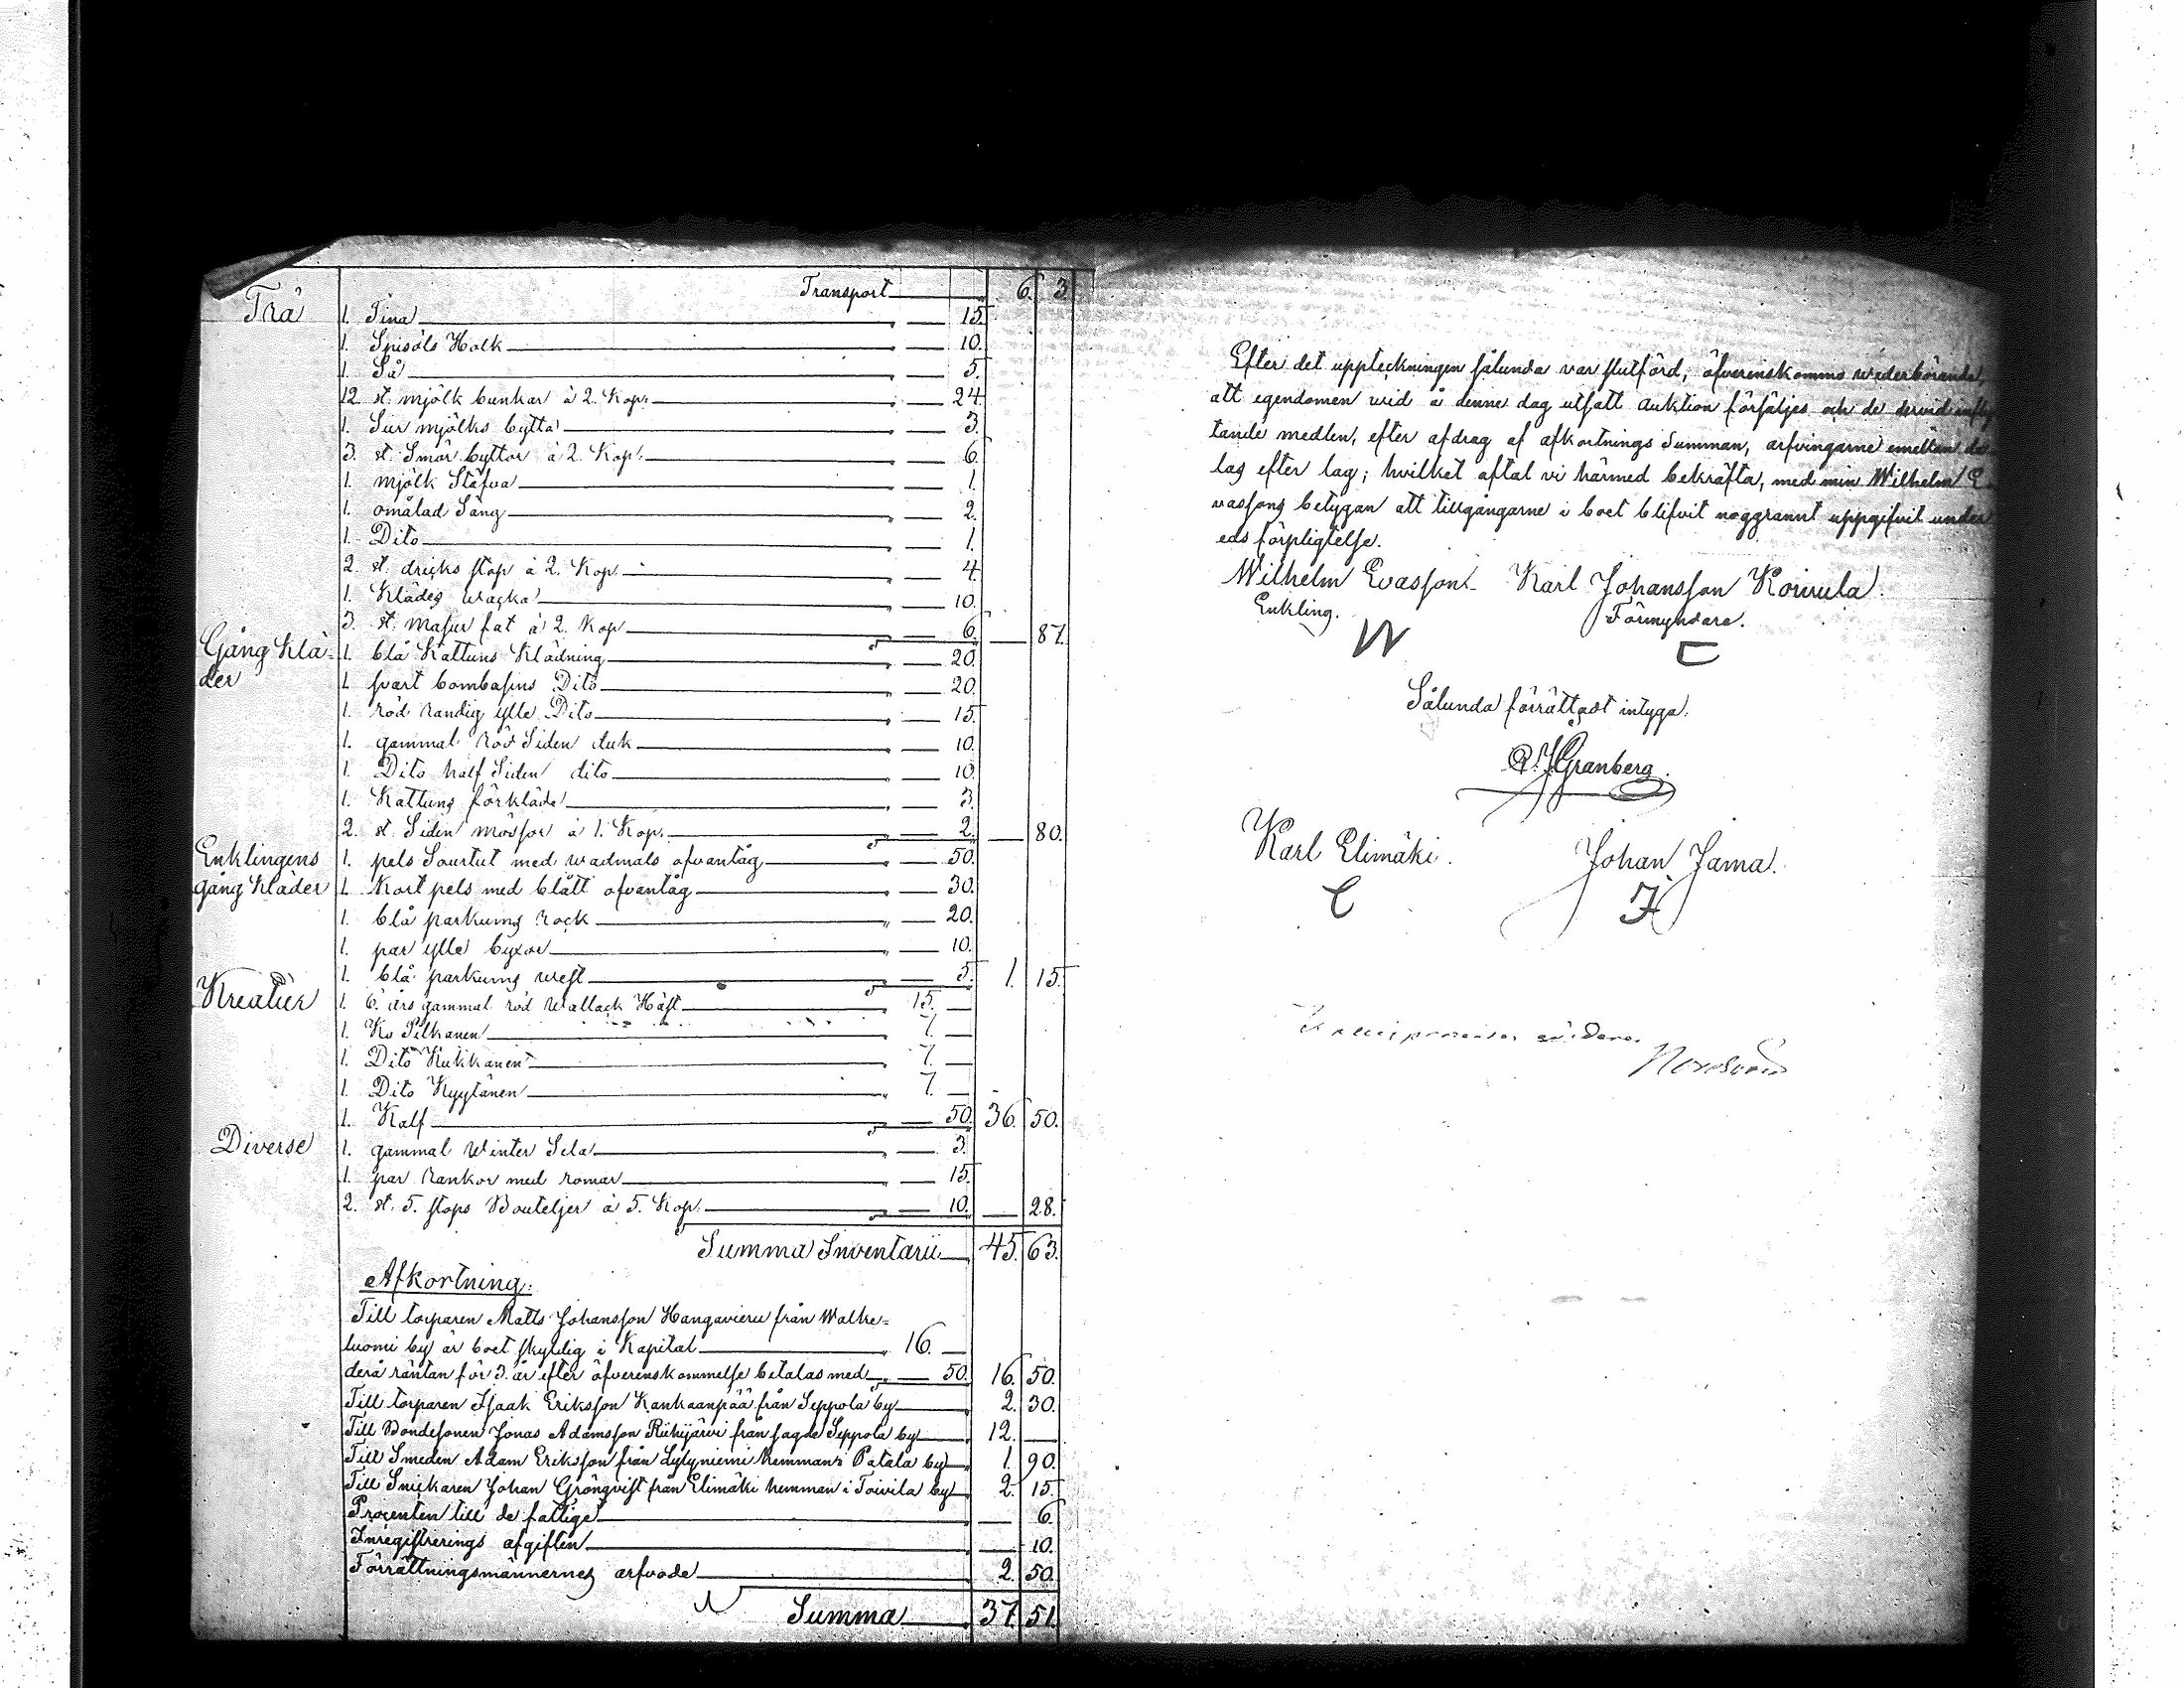 Transport 6. 3
Trä 1. Tina 15.
1. Spisöls Holk 10.
1. Så 5.
12 st. mjölk bunkar à 2. Kop. 24
1. Sur mjölks bytta 3.
3. st. Smör byttor à 2. Kop. 6.
1. mjölk Stäfva 1.
1. omålad Säng 2.
1. Dito 1.
2. st. dricks stop à 2. Kop. 4.
1. Klädes wacka 10.
3. st. masur fat à 2. Kop 6. — 87.
Gång Klä- 1. blå Kattuns Klädning 20.
der 1. svart bombasins Dito 20.
1. röd randig ylle Dito 15.
1. gammal röd Siden duk 10.
1. Dito half Siden dito 10.
1. Kattuns förkläde 3.
2. st. Siden mössor à 1. Kop. 2. — 80.
Enklingens 1. pels Sourtut med wadmals ofvantåg 50.
gång Kläder 1. Kort pels med blått ofvantåg 30.
1. blå parkums Rock 20.
1. par ylle byxor 10.
1. blå parkums west 5. 1. 15.
Kreatur 1. 6. års gammal röd Wallack Häst 15. —
1. Ko Pilkanen 7. —
1. Dito Kukkanen 7. —
1. Dito Kyytänen 7. —
1. Kalf 50. 36. 50.
Diverse 1. gammal Winter Sela 3.
1. par Rankor med romar 15.
2. st. 5. stops Bouteljer à 5. Kop. 10. — 28.
Summa Inventarii 45. 63.
Afkortning:
Till torparen Matts Johansson Hangavieru från Walke=
luomi by är boet skyldig i Kapital 16. —
derå räntan för 3. år efter öfverenskommelse betalas med — 50. 16. 50.
Till torparen Isaak Eriksson Kankaanpää från Seppola by 2. 30.
Till Bondesonen Jonas Adamsson Riihijärvi från sagde Seppola by 12. —
Till Smeden Adam Eriksson från Lylyniemi hemman i Patala by 1. 90.
Till Snickaren Johan Grönqvist från Elimäki hemman i Toivila by 2. 15.
Procenten till de fattige — 6.
Inregistrerings afgiften — 10.
Förrättningsmännernes arfvode 2. 50.
Summa 37. 51.
Efter det uppteckningen sålunda var slutförd, öfverenskommo wederbörande,
att egendomen wid å denne dag utsatt auktion försäljes och de dervid infly
tande medlen, efter afdrag af afkortnings Summan, arfvingarne emellan de
las efter lag; hvilket aftal vi härmed bekräfta, med min Wilhelm E
vassons betygan att tillgångarne i boet blifvit noggrannt uppgifvit under
eds förpligtelse.
Wilhelm Evasson Karl Johansson Koivula
Enkling. Förmyndare.
W
Sålunda förrättadt intyga:
Granberg.
Karl Elimäki. Johan Jama.
C J